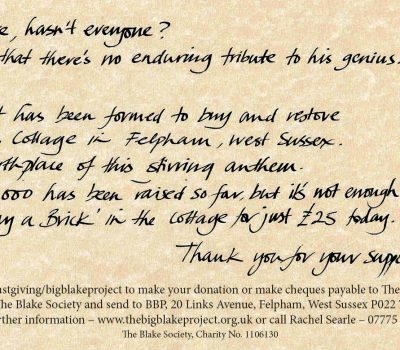 hasn't everyone?
that there's no enduring tribute to his genius.
has been formed to buy and restore
Cottage in Felpham, West Sussex.
of this stirring anthem.
000 has been raised so far, but it's not enough
a Brick' in the cottage for just £25 today.
Thank you for your
/bigblakeproject to make your donation or make cheques payable to The
he Blake Society and send to BBP, 20 Links Avenue, Felpham, West Sussex PO22 7
information – www.thebigblakeproject.org.uk or call Rachel Searle – 07775
The Blake Society, Charity No. 1106130